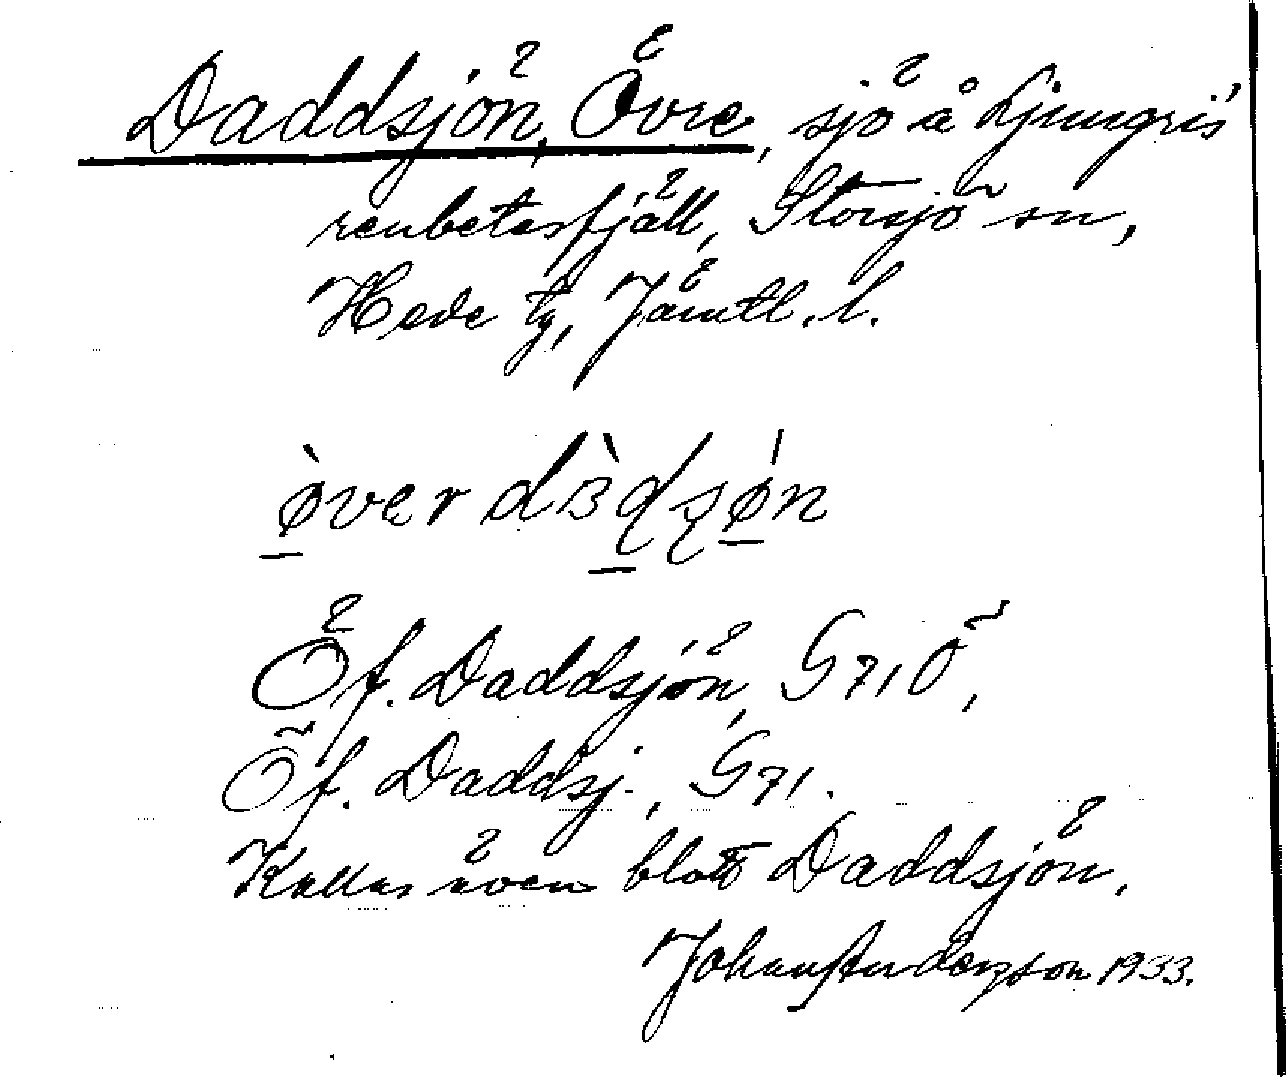 Daddsjön, Övre, sjö å Ljungris
renbetesfjäll, Storsjö sn,
Hede tg, Jämtl. l.
Öf. Daddsjön, G71Ö,
Öf. Daddsj., G71.
Kallas även blott Daddsjön.
Johan Anderzson 1933.